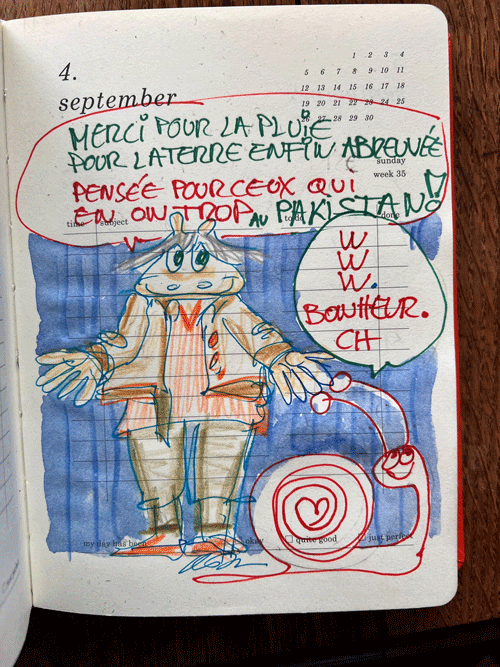 4.
september
1 2 3 4
5 6 7 8 9 10 11
12 13 14 15 16 17 18
19 20 21 22 23 24 25
26 27 28 29 30
sunday
week 35
MERCI POUR LA PLUIE
POUR LA TERRE ENFIN ABREUVÉE
PENSÉE POUR CEUX QUI
EN ON TROP AU PAKISTAN!
time subject to do done
W
W
W.
BONHEUR.
CH
my day has been okay quite good just perfect